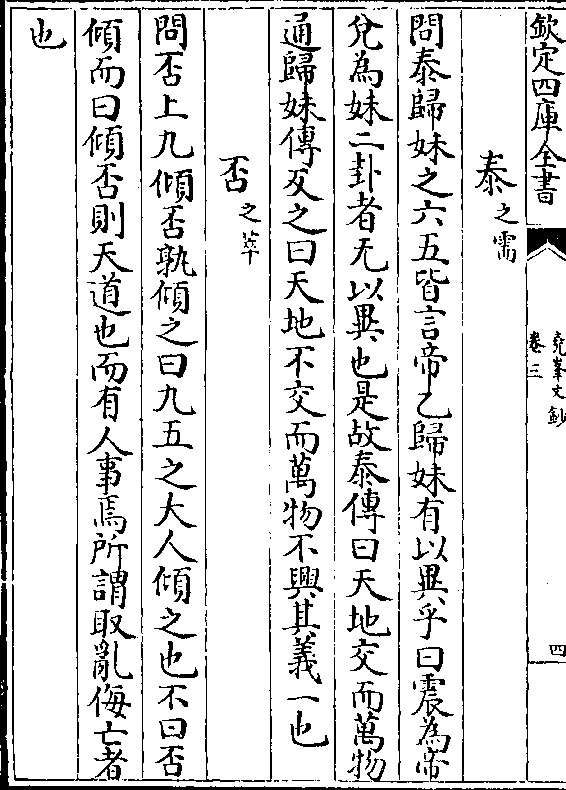 欽定四庫全書
堯峯文鈔
卷三
四
泰之需
問泰歸妹之六五皆言帝乙歸妹有以異乎曰震為帝
兌為妹二卦者无以異也是故泰傳曰天地交而萬物
通歸妹傳反之曰天地不交而萬物不興其義一也
否之萃
問否上九傾否孰傾之曰九五之大人傾之也不曰否
傾而曰傾否則天道也而有人事焉所謂取亂侮亡者
也